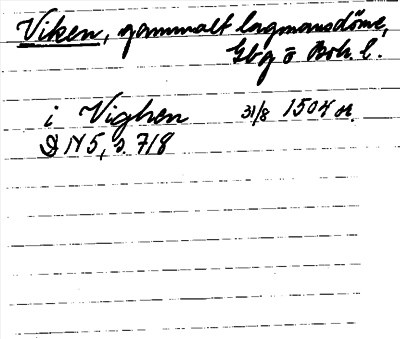 Viken, gammalt lagmansdöme,
Gbg o Boh. l.
i Vighen 31/8 1504 or.
DN 5, s. 718